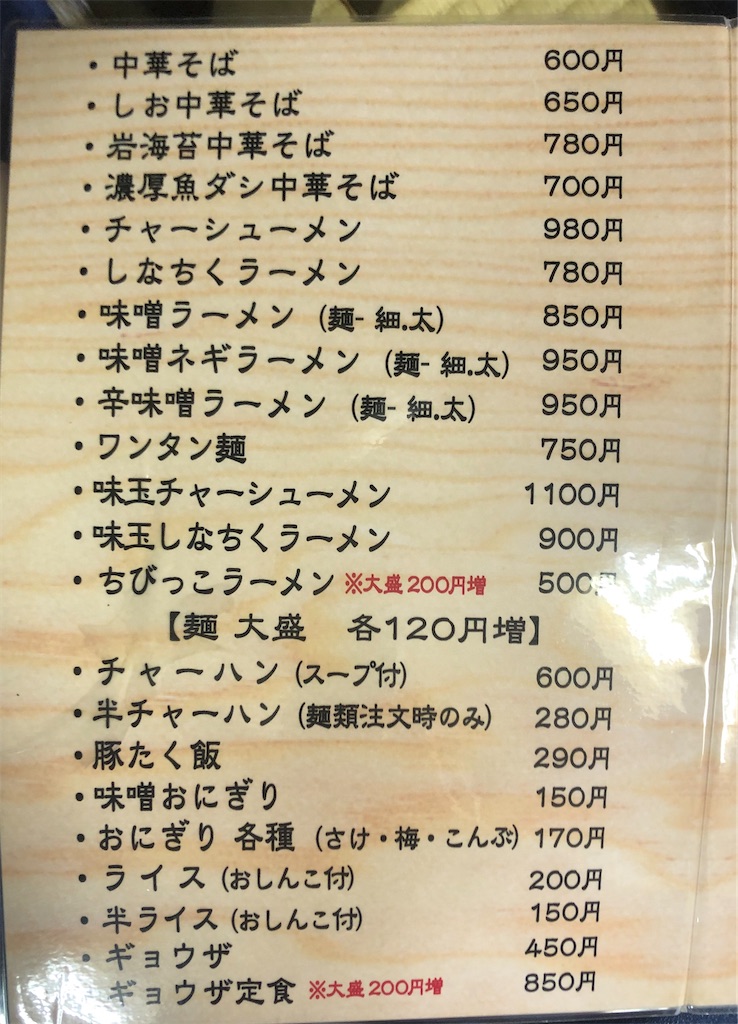 ・中華そば 600円
・しお中華そば 650円
・岩海苔中華そば 780円
・濃厚魚ダシ中華そば 700円
・チャーシューメン 980円
・しなちくラーメン 780円
・味噌ラーメン (麺- 細.太) 850円
・味噌ネギラーメン (麺- 細.太) 950円
・辛味噌ラーメン (麺- 細.太) 950円
・ワンタン麺 750円
・味玉チャーシューメン 1100円
・味玉しなちくラーメン 900円
・ちびっこラーメン ※大盛200円増 500円
【麺 大盛 各120円増】
・チャーハン (スープ付) 600円
・半チャーハン (麺類注文時のみ) 280円
・豚たく飯 290円
・味噌おにぎり 150円
・おにぎり 各種 (さけ・梅・こんぶ) 170円
・ライス (おしんこ付) 200円
・半ライス (おしんこ付) 150円
・ギョウザ 450円
・ギョウザ定食 ※大盛200円増 850円